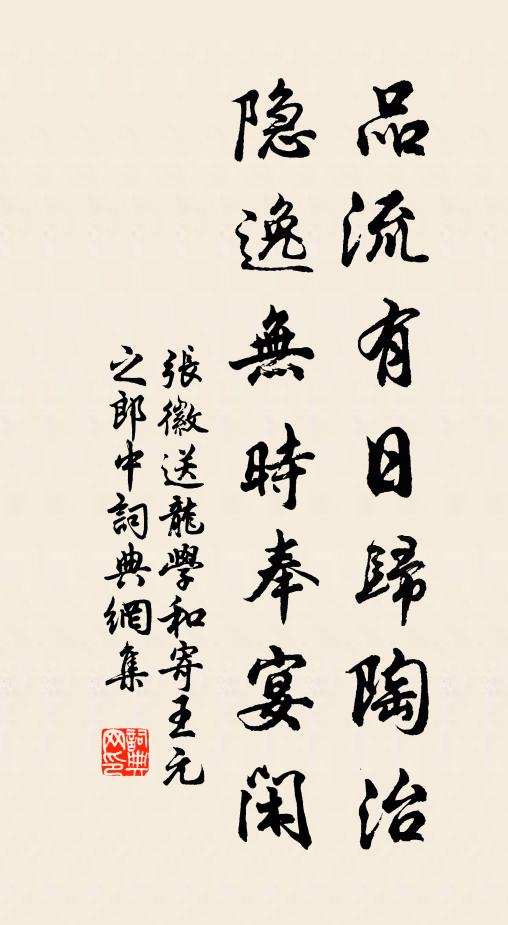 品流有日歸陶冶
隐逸無時奉宴閑
張徽送龍學和寄王元
之郎中詞典網集
詞典
网印